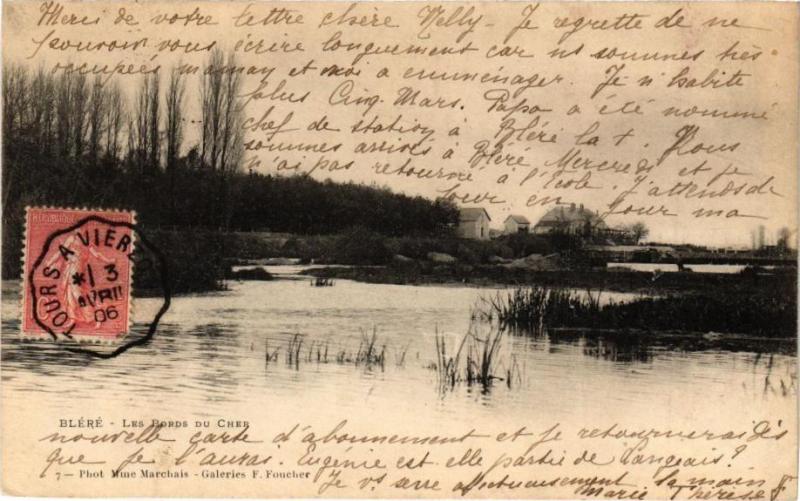 Merci de votre lettre chère Nelly - Je regrette de ne
pouvoir vous écrire longuement car ns sommes très
occupées maman et moi a emménager. Je n'habite
plus Cinq-Mars. Papa a été nommé
chef de station à Bléré la +. Nous
sommes arrivés à Bléré Mercredi et je
n'ai pas retourné à l'école. J'attends de
jour en jour ma
RÉPUBLIQUE
TOURS A VIERZON
*1 3
AVRIL
06
BLÉRÉ - LES BORDS DU CHER
nouvelle carte d'abonnement et je retournerai dès
que je l'aurai. Eugénie est elle partie de Langeais?
7 - Phot Mme Marchais - Galeries F. Foucher
Je vs serre affectueusement la main
Marie Thérèse